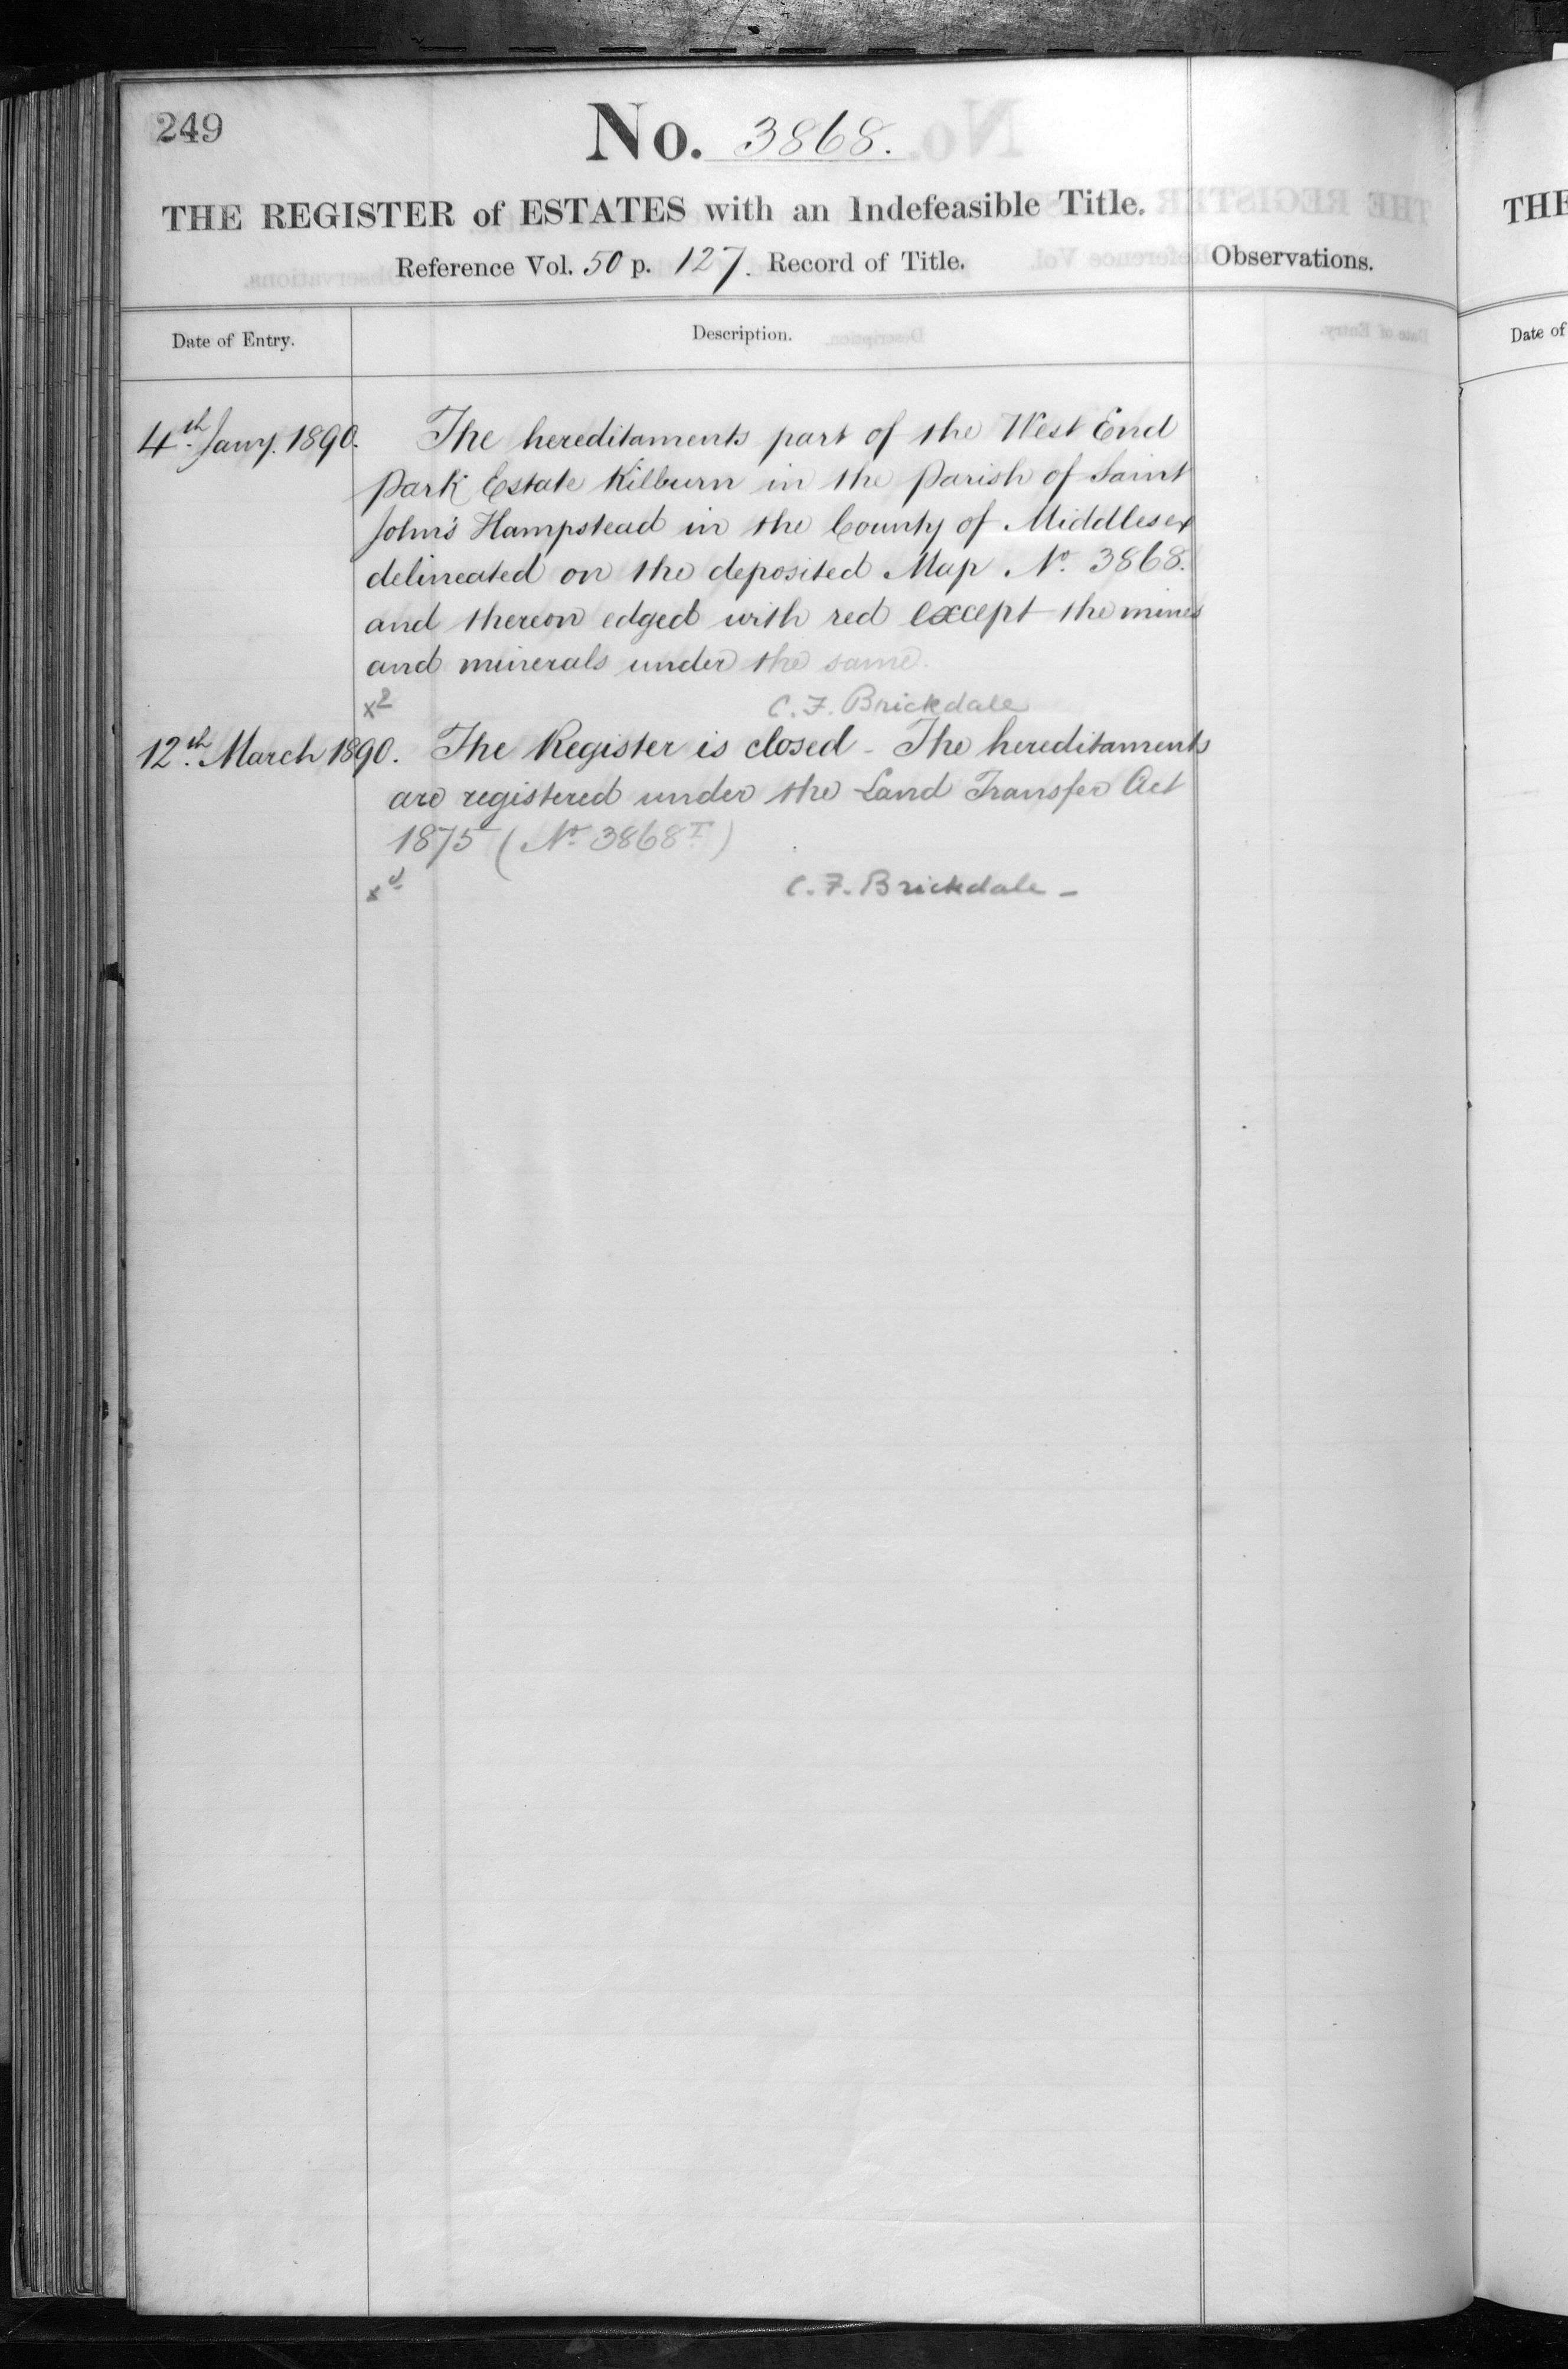 249
No. 3868.
THE REGISTER of ESTATES with an Indefeasible Title.
Reference Vol. 50 p. 127. Record of Title.
Observations.
Date of Entry.
Description.
4th Jany. 1890.
The hereditaments part of the West End
Park Estate Kilburn in the Parish of Saint
John's Hampstead in the County of Middlesex
delineated on the deposited Map No. 3868.
and thereon edged with red except the mines
and minerals under the same.
C. F. Brickdale
12th March 1890.
The Register is closed - The hereditaments
are registered under the Land Transfer Act
1875 (No 3868T)
C. F. Brickdale -
THE
Date of